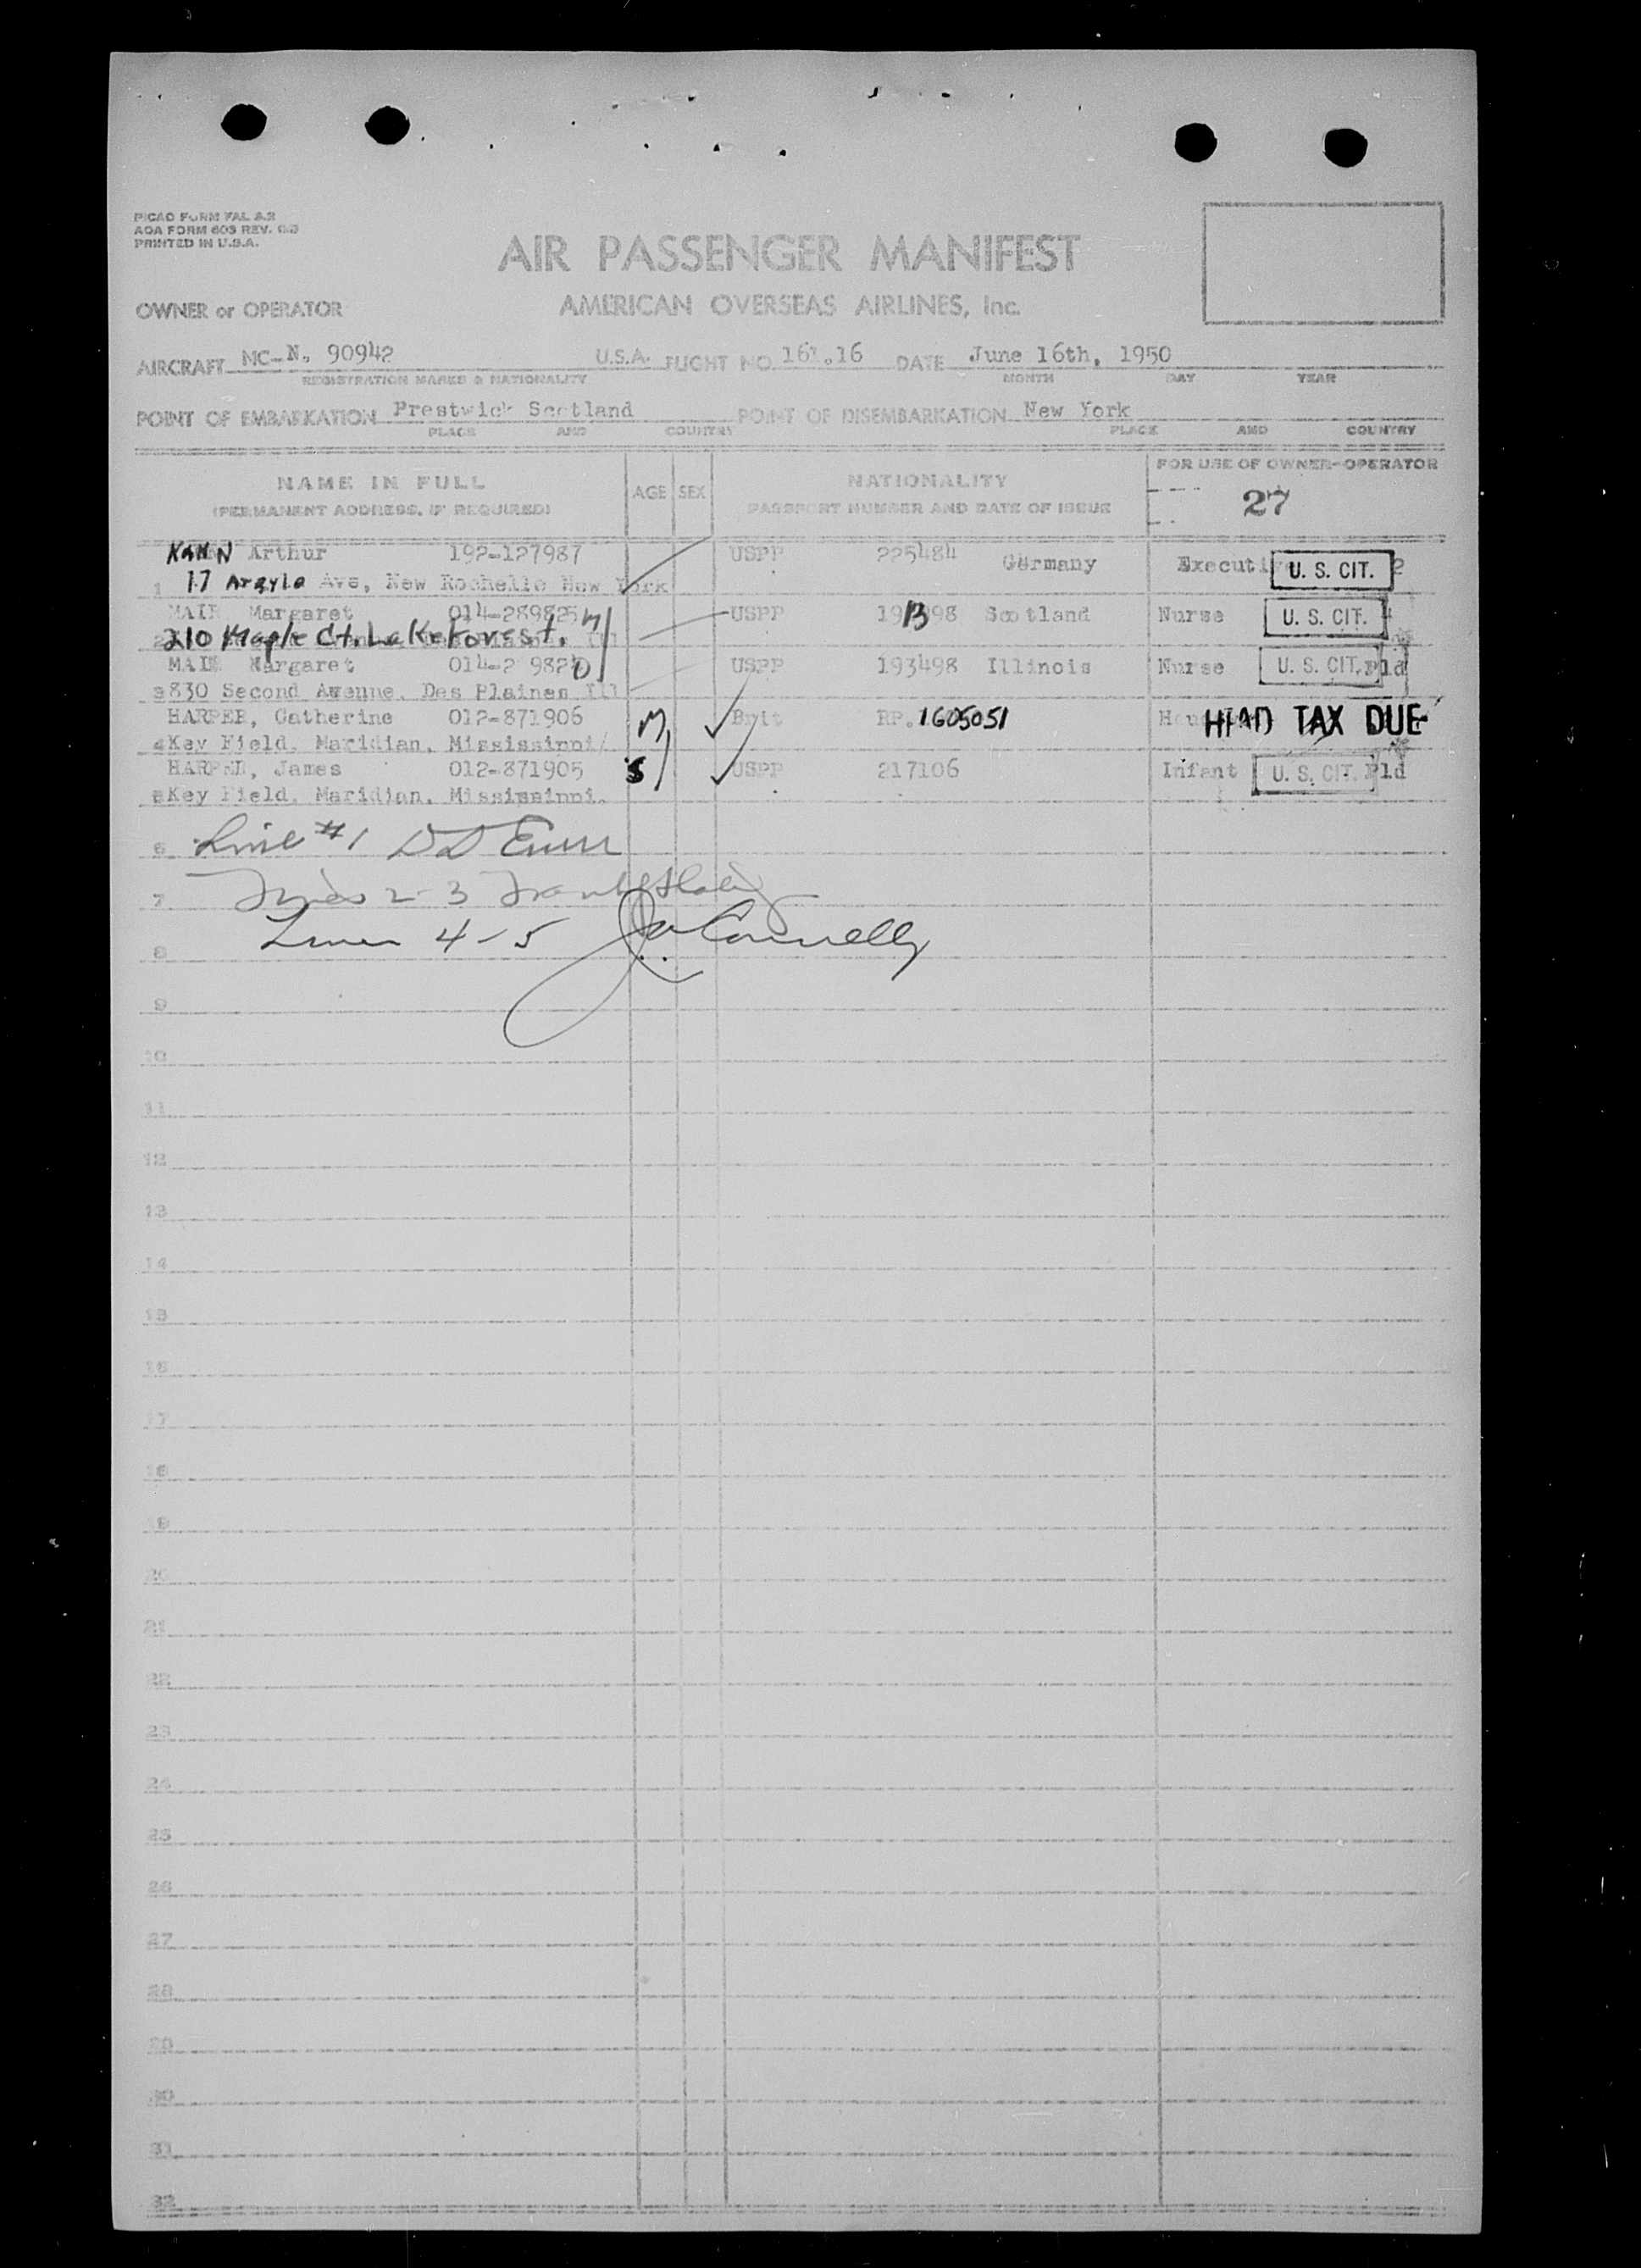 PICAO FORM FAL
AOA FORM 603 REV.
PRINTED IN U.S.A.
AIR PASSENGER MANIFEST
OWNER or OPERATOR AMERICAN OVERSEAS AIRLINES, Inc.
AIRCRAFT NC-N. 90942 U.S.A. FLIGHT NO. 161.16 DATE June 16th, 1950
REGISTRATION MARKS & NATIONALITY MONTH DAY YEAR
POINT OF EMBARKATION Prestwick Scotland POINT OF DISEMBARKATION New York
PLACE AND COUNTRY PLACE AND COUNTRY
NAME IN FULL AGE SEX NATIONALITY FOR USE OF OWNER-OPERATOR
(PERMANENT ADDRESS, IF REQUIRED) PASSPORT NUMBER AND DATE OF ISSUE 27
KAHN Arthur 192-127987 USPP 225484 Germany U. S. CIT. 2
1 17 Argyle Ave, New Rochelle New York
MAIR Margaret 014-289825 M USPP Scotland Nurse U. S. CIT.
2 210 Maple Ct. Lake Forest. Ill
MAIR Margaret USPP 193498 Illinois Nurse U. S. CIT. Pld
3 830 Second Avenue, Des Plaines Ill
HARPER, Catherine 012-871906 M Brit RP. 1605051 HEAD TAX DUE
4 Key Field, Maridian, Mississippi
HARPER, James 012-871905 S USPP 217106 Infant U. S. CIT. Pld
5 Key Field, Maridian, Mississippi.
6 Line #1
7 Lines 2-3
8 Lines 4-5 Connelly
9
10
11
12
13
14
15
16
17
18
19
20
21
22
23
24
25
26
27
28
29
30
31
32